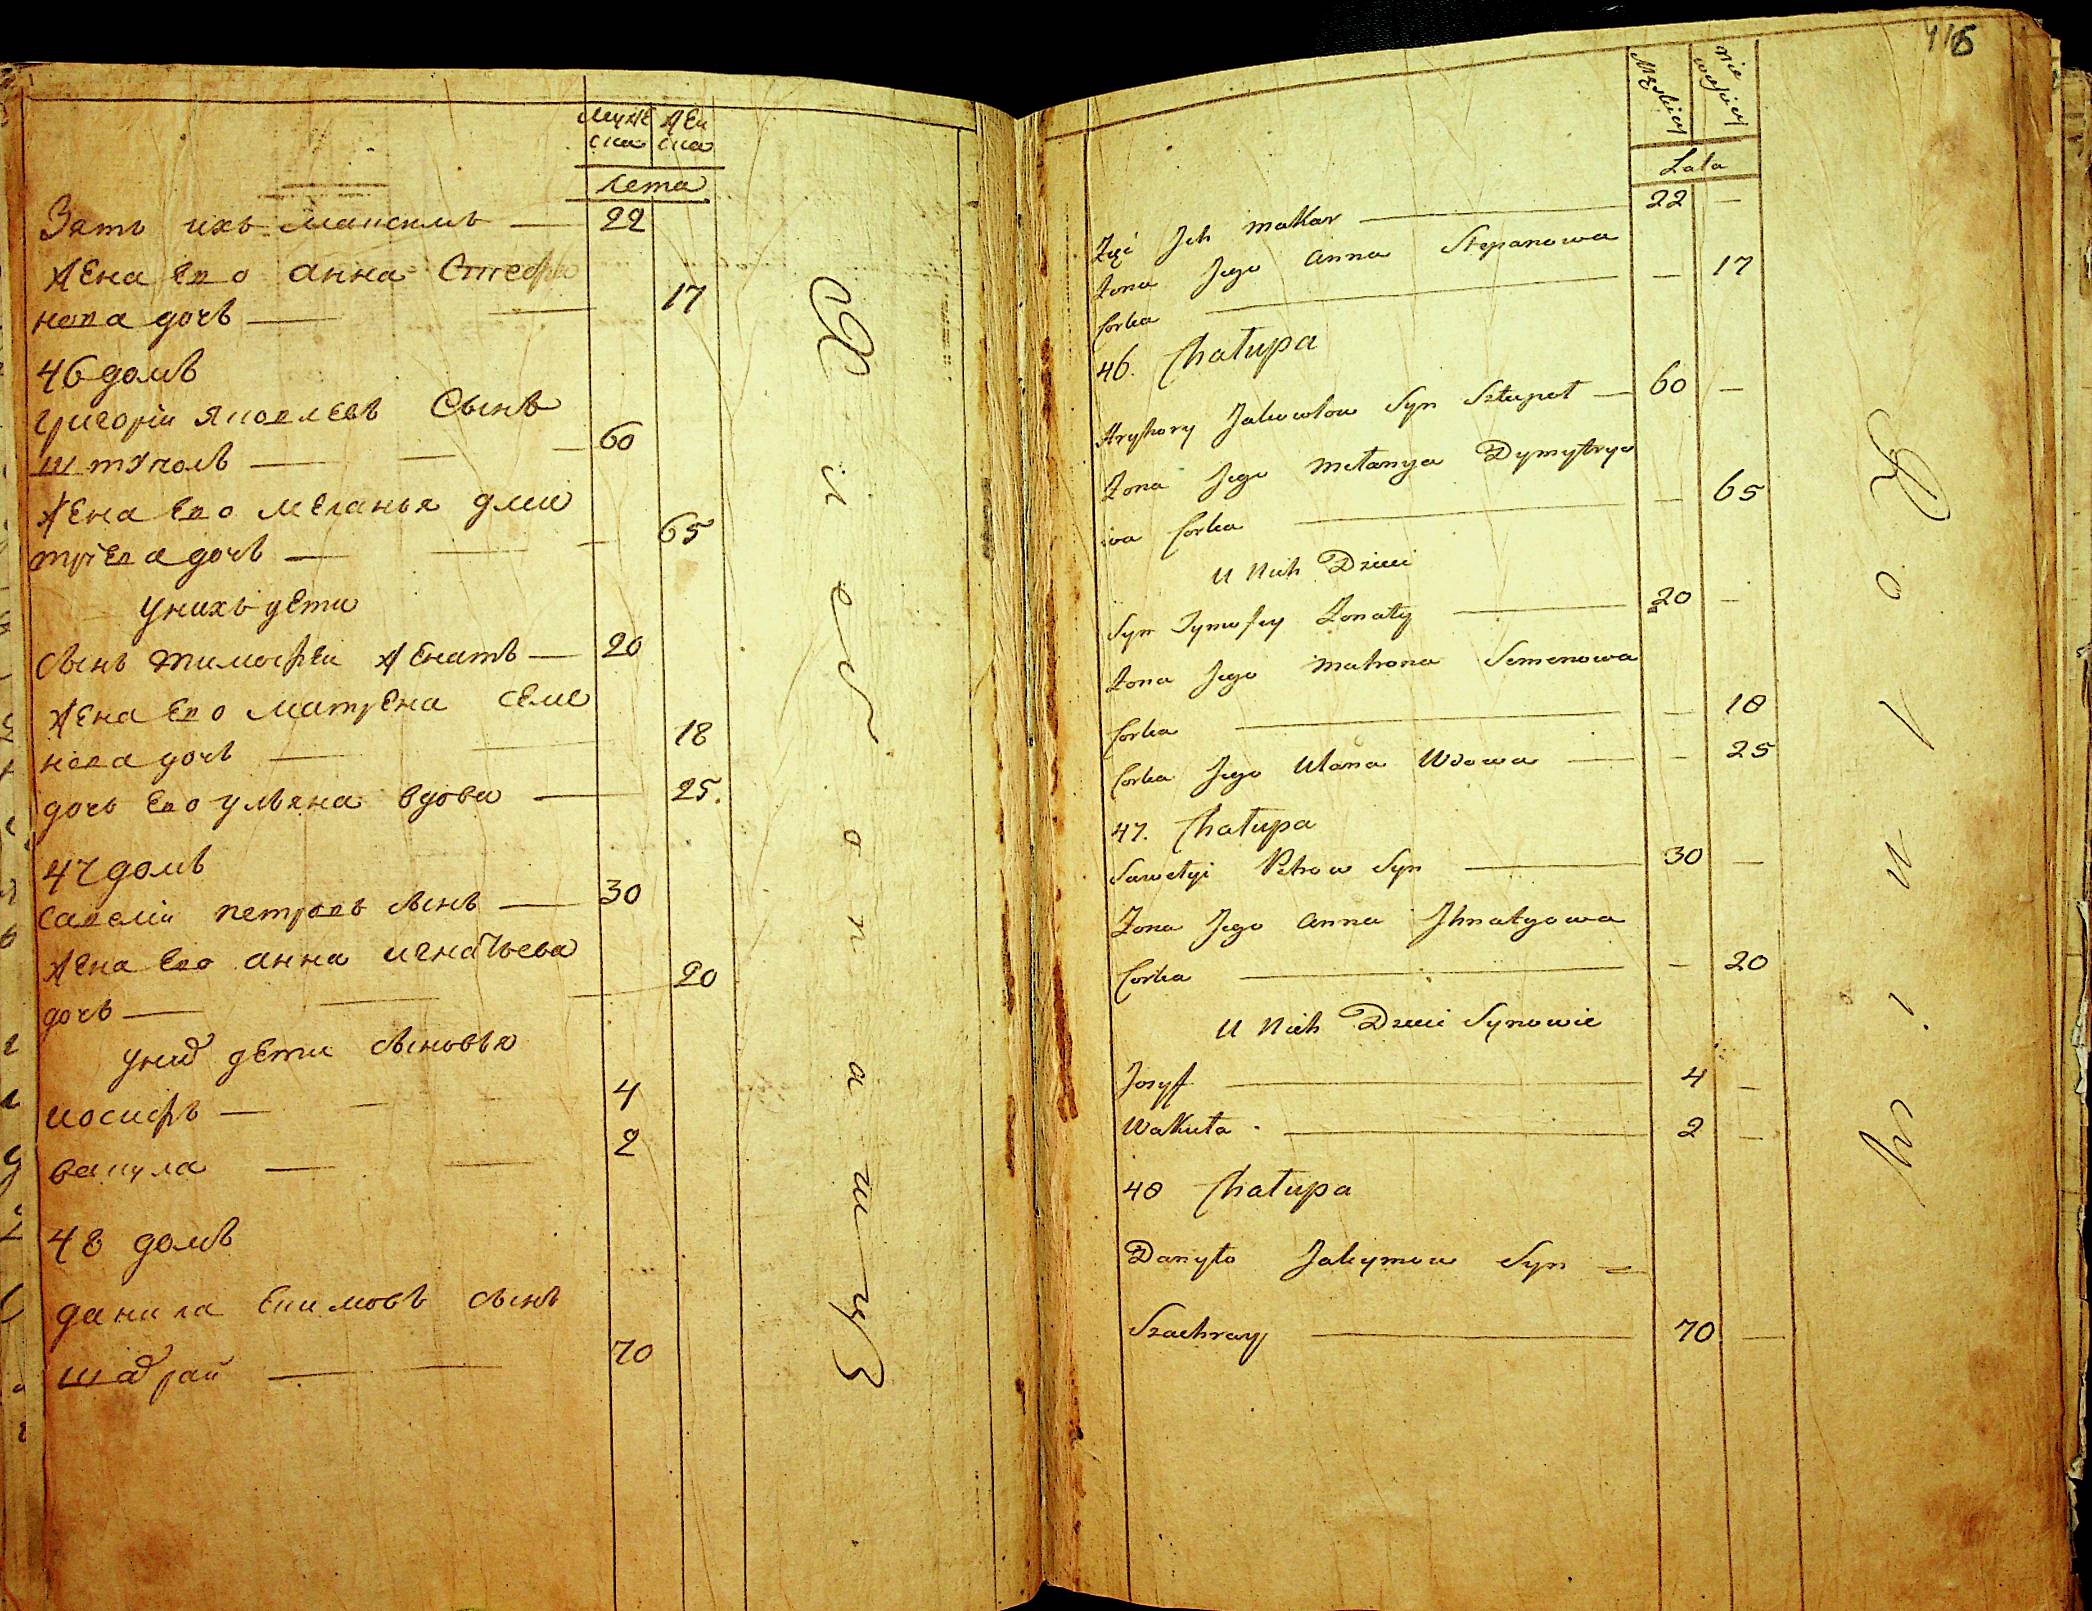 муже
ска
жен
ска
Лета
Зять ихъ максимъ — 22
жена ево анна Стефа
нова дочь — 17
46 домъ
григорiи яковлевъ Сынъ
штуполъ — 60
жена ево меланья дми
трiева дочь — 65
унихъ дети
сынъ тимофеи женатъ — 20
жена ево матрена семе
нова дочь — 18
дочь ево ульяна вдова — 25.
47 домъ
савелiи петровъ сынъ — 30
жена ево анна игнатьева
дочь — 20
уних дети сыновья
иосифъ — 4
вакула — 2
48 домъ
данила екимовъ сынъ
шахрай — 70
416
Męskiey
nie
wieściey
Lata
Zięć Jch makar — 22 —
Żona Jego anna Stepanowa
Corka — — 17
46. Chałupa
Hryhory Jakowlow Syn Sztupoł — 60 —
Żona Jego Mełanya Dymytrye
wa Corka — — 65
U Nich Dzieci
Syn Tymofey Żonaty — 20 —
Żona Jego Matrona Semenowa
Corka — — 18
Corka Jego Ulana Wdowa — — 25
47. Chałupa
Sawełyi Petrow Syn — 30 —
Żona Jego anna Jhnatyowa
Corka — — 20
U Nich Dzieci Synowie
Josyff — 4 —
Wakuła — 2 —
48 Chałupa
Danyło Jakymow Syn —
Szachray — 70 —